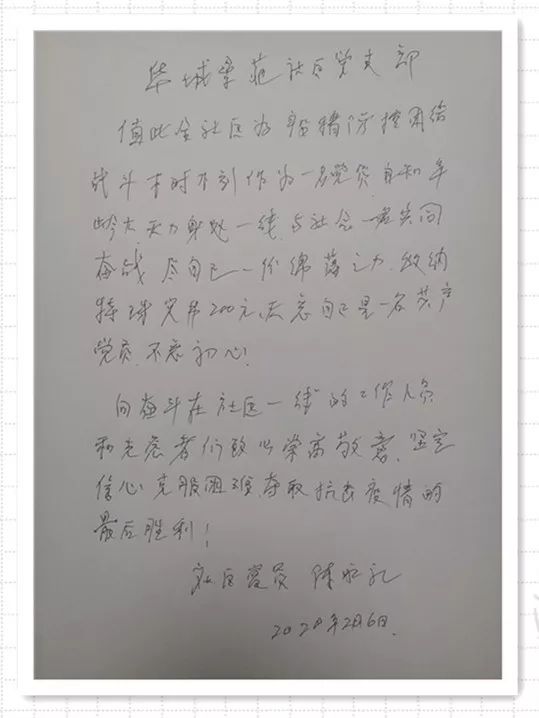 华城 社区党支部
值此全社区为 疫情防控团结
战斗 时 刻作为一名党员自知年
龄大无力身处一线与社会一居共同
奋战 尽自己一份绵薄之力 缴纳
特殊党费200元, 自己是一名共产
党员,不忘初心!
向奋斗在社区一线的工作人员
和志愿者们致以崇高敬意,坚定
信心克服困难夺取抗击疫情的
最后胜利!
社区党员 陈永礼
2020年2月6日.